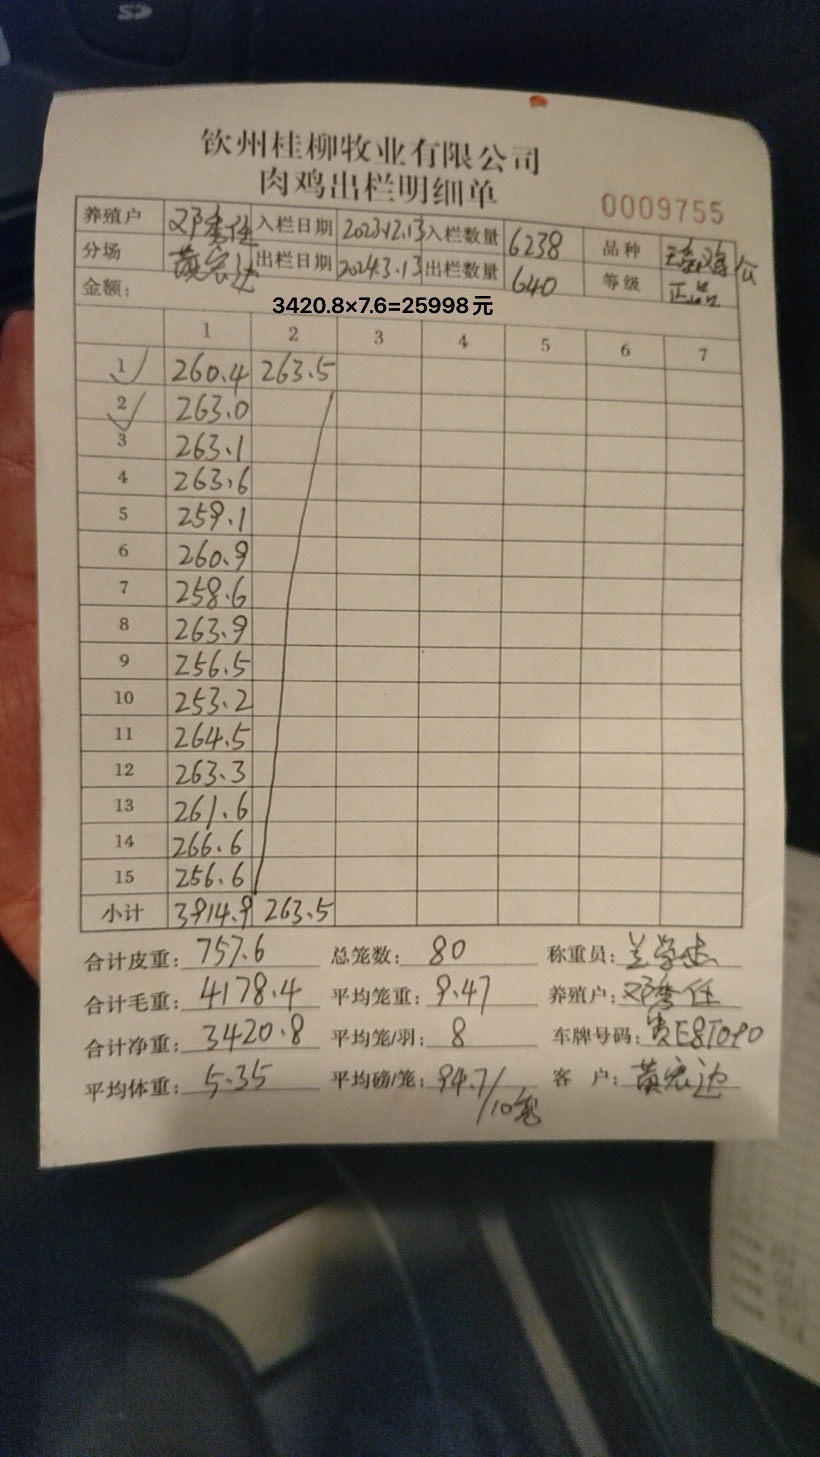 钦州桂柳牧业有限公司
肉鸡出栏明细单
0009755
养殖户 邓秀任 入栏日期 2023.12.13 入栏数量 6238 品种 瑶鸡公
分场 黄宏边 出栏日期 2024.3.13 出栏数量 640 等级 正品
金额:
3420.8×7.6=25998元
1 2 3 4 5 6 7
1 260.4 263.5
2 263.0
3 263.1
4 263.6
5 259.1
6 260.9
7 258.6
8 263.9
9 256.5
10 253.2
11 264.5
12 263.3
13 261.6
14 266.6
15 256.6
小计 3914.9 263.5
合计皮重: 757.6 总笼数: 80 称重员:
合计毛重: 4178.4 平均笼重: 9.47 养殖户: 邓秀任
合计净重: 3420.8 平均笼/羽: 8 车牌号码: 贵E8T090
平均体重: 5.35 平均磅/笼: 94.7/10笼 客 户: 黄宏边